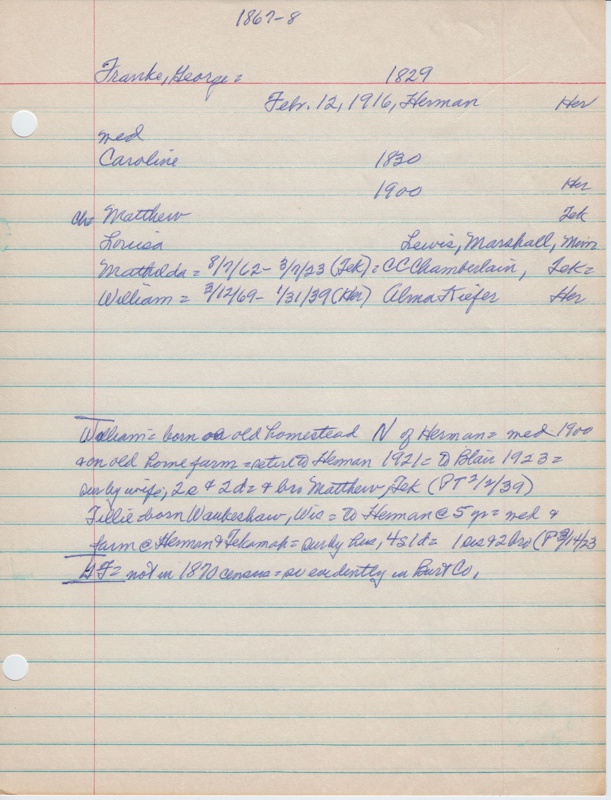 1867-8
Franke, George = 1829
Febr. 12, 1916, Herman Her
med
Caroline 1830
1900 Her
chr Matthew Tek
Louisa Lewis, Marshall, Minn
Mathilda = 8/7/62 - 3/7/23 (Tek) = CC Chamberlain, Tek =
William = 3/12/69 - 1/31/39 (Her) Alma Kiefer Her
William = born on old homestead N of Herman = med 1900
+ on old home farm = retired to Herman 1921 = to Blair 1923 =
sur by wife, 2s + 2d = + bro Matthew, Tek (PT 2/2/39)
Tillie = born Waukeshaw, Wis = to Herman @ 5 yr = med +
farm @ Herman + Tekamah = sur by hus, 4s 1d = 1 sis + 2 bro (P 3/14/23
GF = not in 1870 census = so evidently in Burt Co,